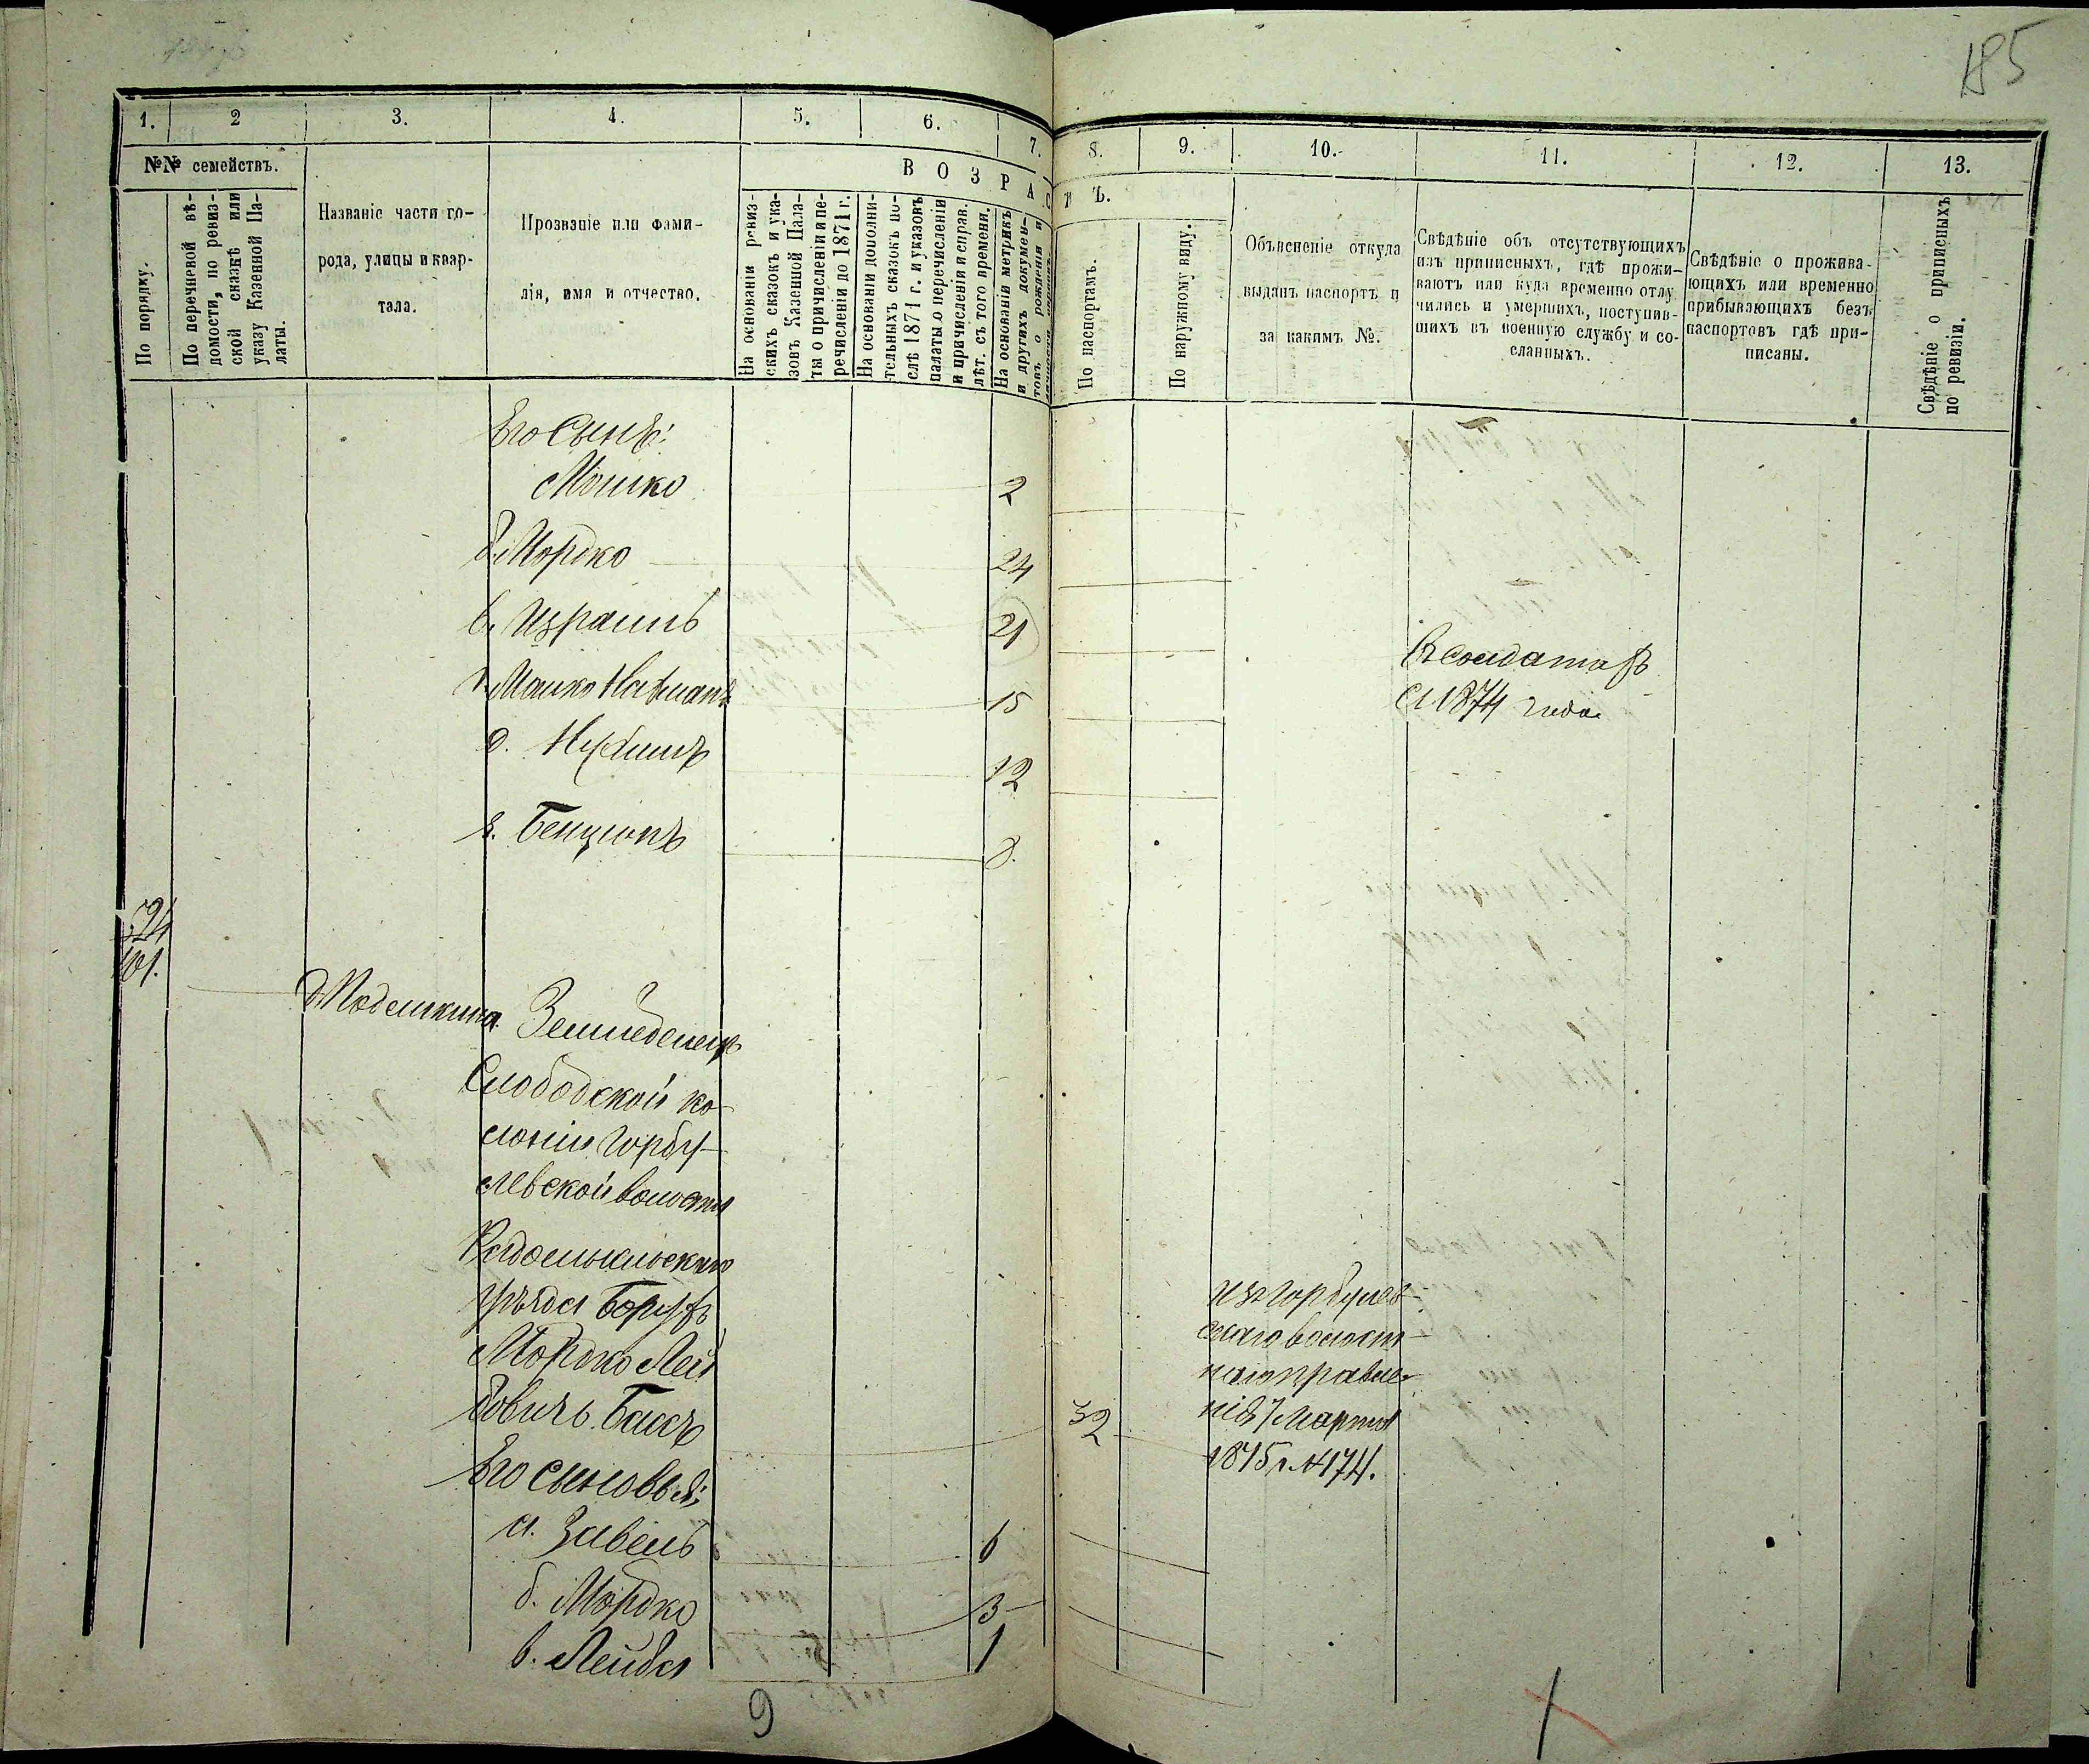 185
1.
2
3.
4.
5.
6.
7.
8.
9.
10.
11.
12.
13.
№№ семействъ.
По порядку.
По перечневой вѣ-
домости, по ревиз-
ской сказкѣ или
указу Казенной Па-
латы.
Названіе части го-
рода, улицы и квар-
тала.
Прозваніе или фами-
лія, имя и отчество.
ВОЗРАСТЪ.
На основаніи ревиз-
скихъ сказокъ и ука-
зовъ Казенной Пала-
ты о причисленіи и пе-
речисленіи до 1871 г.
На основаніи дополни-
тельныхъ сказокъ по-
слѣ 1871 г. и указовъ
палаты о перечисленіи
и причисленіи и справ.
лѣт. съ того времени.
На основаніи метрикъ
и другихъ докумен-
товъ о рожденіи и
По паспортамъ.
По наружному виду.
Объясненіе откуда
выданъ паспортъ и
за какимъ №.
Свѣдѣніе объ отсутствующихъ
изъ приписныхъ, гдѣ прожи-
ваютъ или куда временно отлу
чились и умершихъ, поступив-
шихъ въ военную службу и со-
сланныхъ.
Свѣдѣніе о прожива-
ющихъ или временно
прибывающихъ безъ
паспортовъ гдѣ при-
писаны.
Свѣдѣніе о приписныхъ
по ревизіи.
Его Сынъ:
Мошко 2
б. Мордко 24
в. Израиль 21
Въ солдатахъ
съ 1874 года
г. Мошко Нахманъ 15
д. Нухимъ 12
е. Бенціонъ 8.
524
101.
Земледелецъ
Слободской ко-
лоніи Горбу-
левской волости
Радомысльскаго
уѣзда Борухъ
Мордко Лей
бовичъ Басъ 32
изъ Горбулев-
скаго волост-
наго правле-
нія 7 Марта
1875 г. № 174.
Его сыновья:
а. Завель 6
б. Мордко 3
в. Лейба 1
9